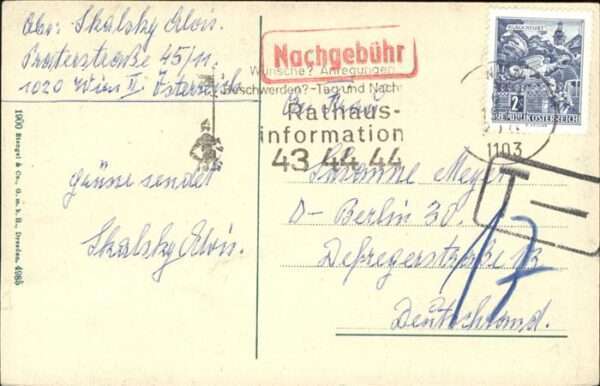 Abs: Skalsky Alois.
Praterstraße 45/11.
1020 Wien II Österreich
Nachgebühr
Wünsche? Anregungen
Beschwerden? - Tag und Nacht
Rathaus-
information
43 44 44
KLAGENFURT
2
REPUBLIK ÖSTERREICH
1103
T
Grüsse sendet
Skalsky Alois.
Susanne Meyer
D-Berlin 30.
Defregerstraße 13
Deutschland.
17
1900 Stengel & Co., G. m. b. H., Dresden. 4985